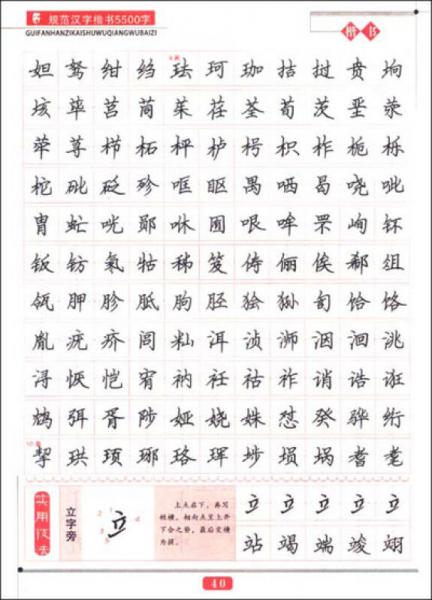 规范汉字楷书5500字
GUIFANHANZIKAISHUWUQIANGWUBAIZI
楷书
九画
妲驽绀绉珐珂珈拮挝贲垧
垓荜莒茼茱荏荃荀茨垩荥
荦荨栉柘枰栌枵枳柞栀栎
柁砒砭殄哐眍禺哂曷哓呲
胄虻咣郧咻囿哏哞罘峋钚
钣钫氡牯秭笈俦俪俟郗俎
瓴胛胗胝朐胫狯狲訇饸饹
胤疣疥闾籼洱浈浉洇洄洮
浔恹恺宥衲衽祜祚诮诰诳
鸩弭胥陟娅娆姝怼癸骅绗
十画
挈珙顼琊珞珲埗埙埚耆耄
实用技法
立字旁
立
上点居下，再写
短横，相向点呈上开
下合之势，最后变横
为提。
立立立立立
站竭端竣翊
40